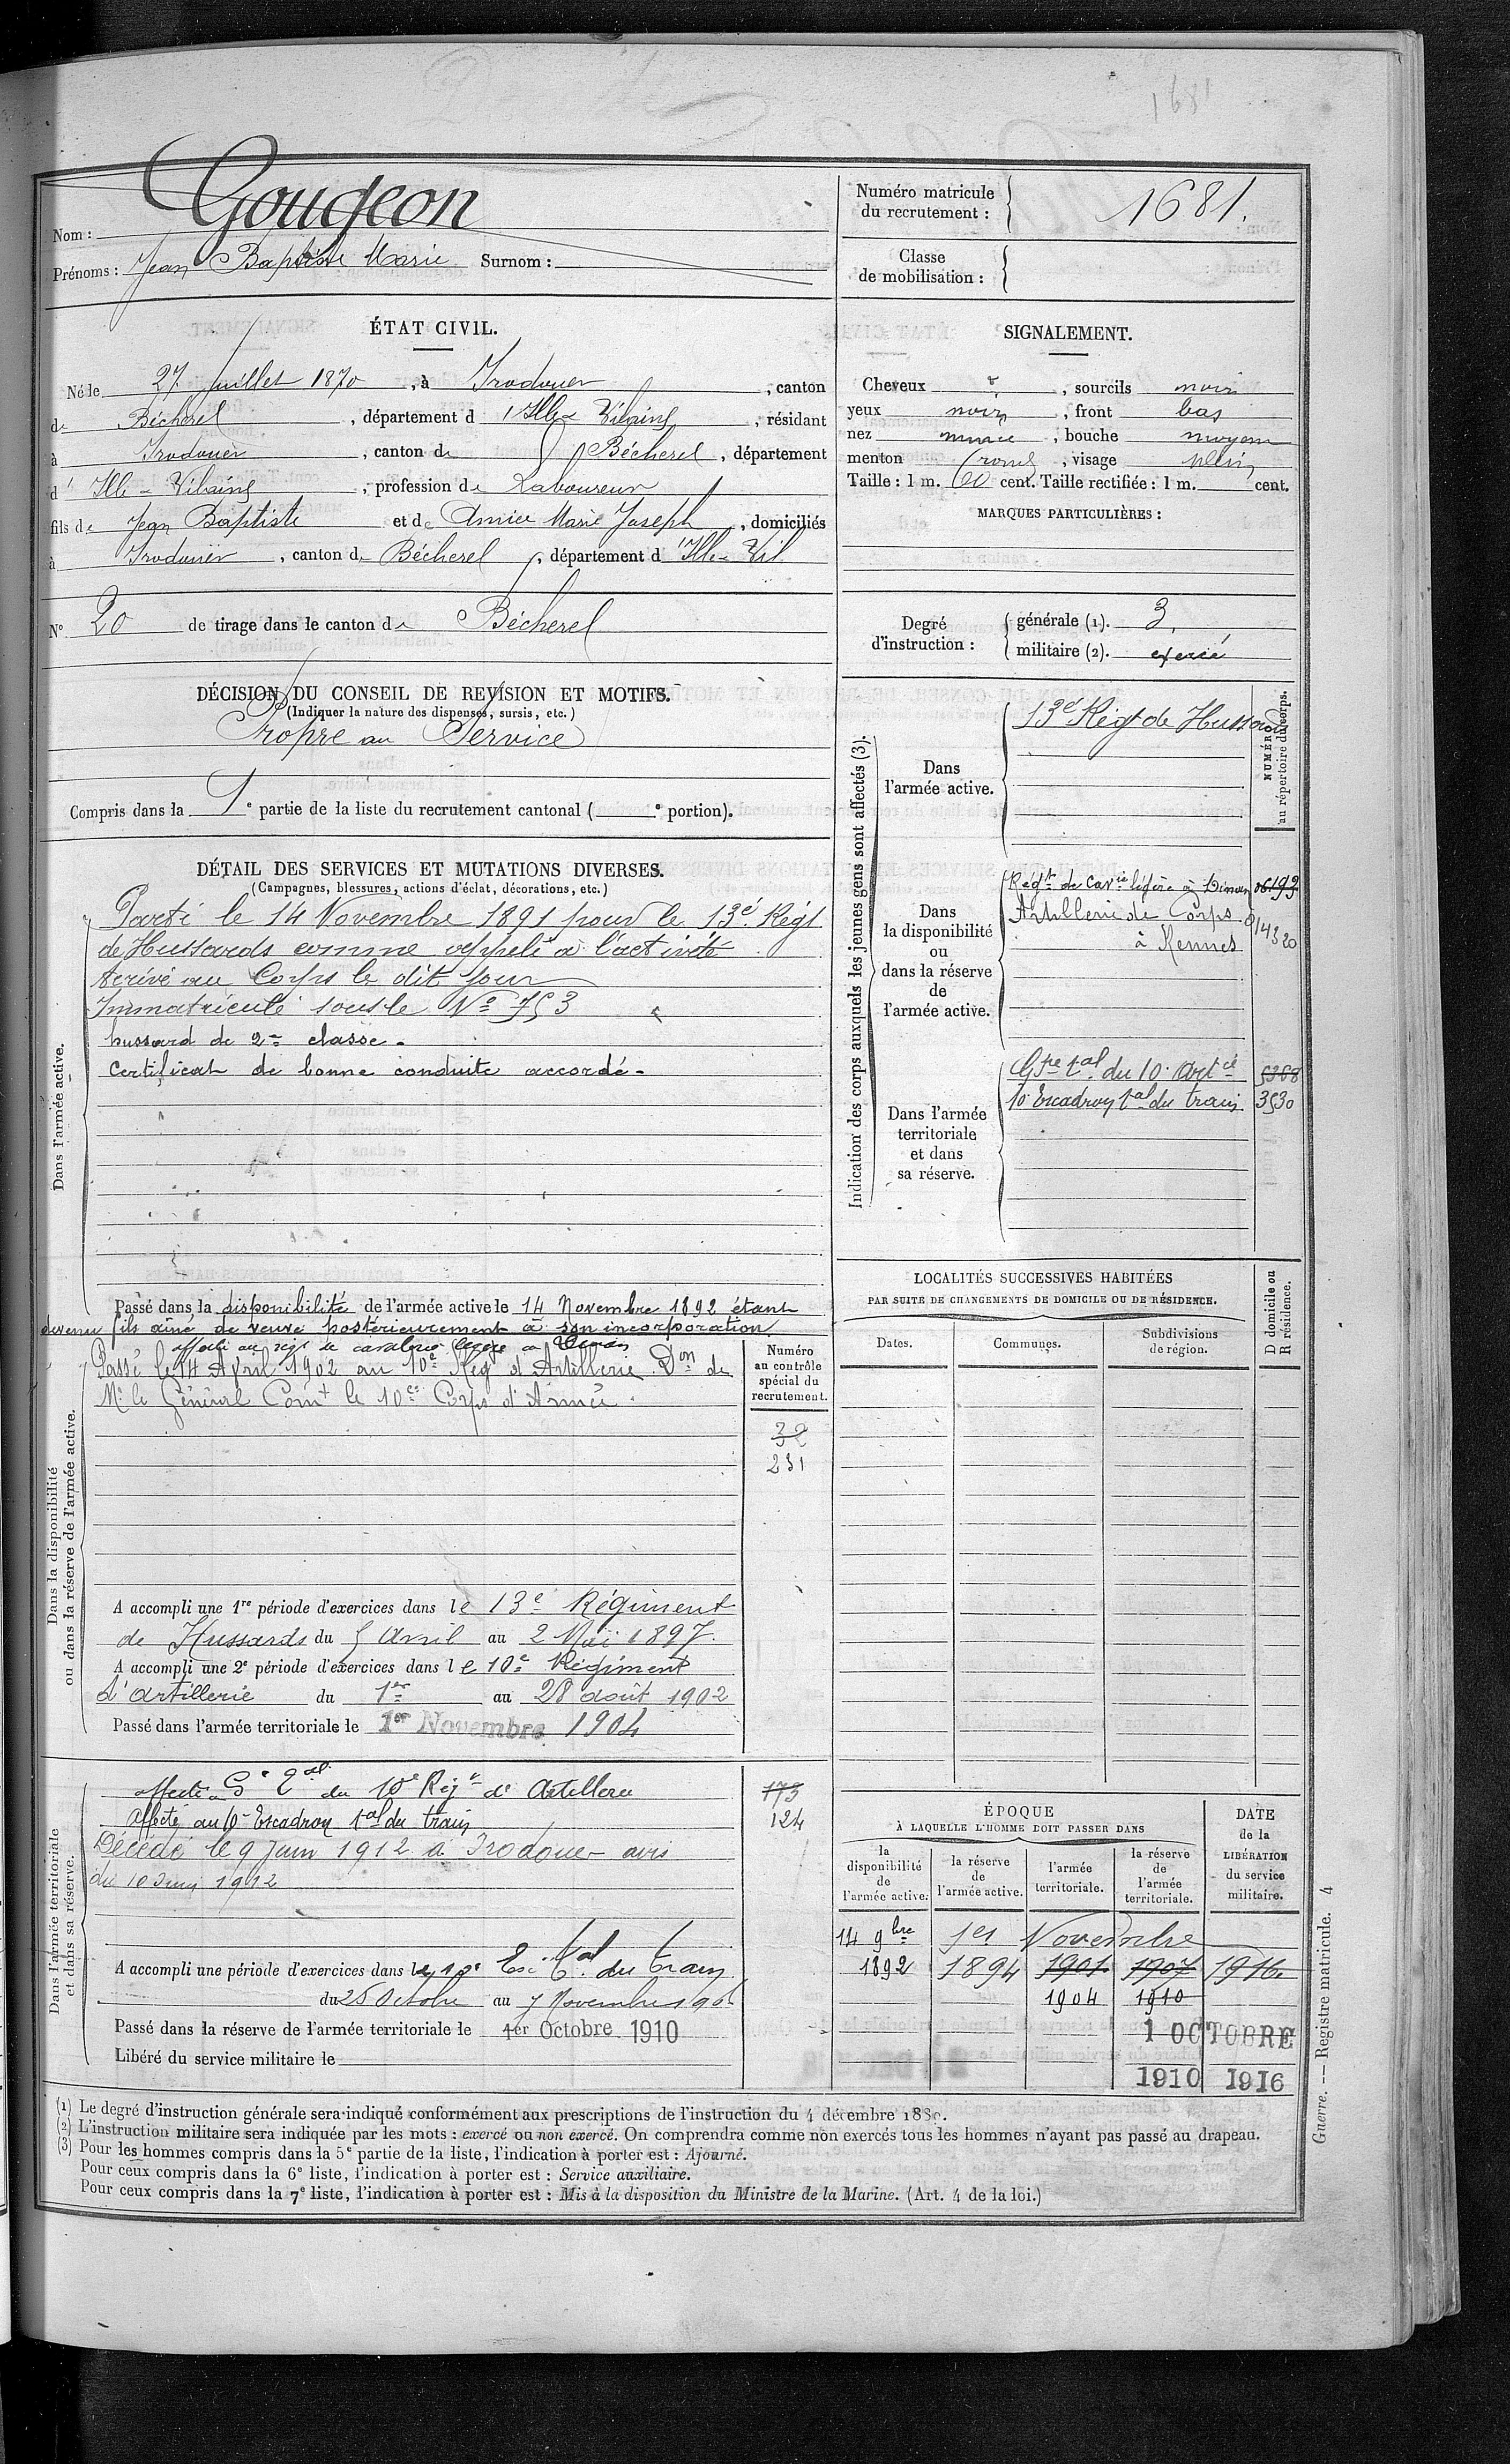 1681
Nom : Gougeon
Prénoms : Jean Baptiste Marie Surnom :
Numéro matricule
du recrutement : 1681.
Classe
de mobilisation :
ÉTAT CIVIL.
Né le 27 Juillet 1870, à Irodouer, canton
de Bécherel, département d'Ille-Vilaine, résidant
à Irodouer, canton de Bécherel, département
d'Ille-Vilaine, profession de Laboureur
fils de Jean Baptiste et de Amice Marie Joseph, domiciliés
à Irodouër, canton de Bécherel, département d'Ille-Vil
N° 20 de tirage dans le canton de Bécherel
SIGNALEMENT.
Cheveux, sourcils noirs
yeux noirs, front bas
nez mince, bouche moyenne
menton rond, visage plein
Taille : 1 m. 60 cent. Taille rectifiée : 1 m. cent.
MARQUES PARTICULIÈRES :
Degré
d'instruction :
générale (1). 3.
militaire (2). exercé
DÉCISION DU CONSEIL DE REVISION ET MOTIFS.
(Indiquer la nature des dispenses, sursis, etc.)
Propre au Service
Compris dans la 1e partie de la liste du recrutement cantonal ( e portion).
DÉTAIL DES SERVICES ET MUTATIONS DIVERSES.
(Campagnes, blessures, actions d'éclat, décorations, etc.)
Dans l'armée active.
Parti le 14 Novembre 1891 pour le 13e Régt
de Hussards comme appelé à l'activité
Arrivé au Corps le dit jour
Immatriculé sous le No 753
hussard de 2me classe.
Certificat de bonne conduite accordé.
Passé dans la disponibilité de l'armée active le 14 Novembre 1892 étant
devenu fils aîné de veuve postérieurement à son incorporation.
Dans la disponibilité
ou dans la réserve de l'armée active.
affecté au régt de cavalerie légère à Dinan
Passé le 14 Avril 1902 au 10e Rég d'Artillerie. Don de
Mr le Général Comt le 10e Corps d'Armée.
Numéro
au contrôle
spécial du
recrutement.
32
231
A accompli une 1re période d'exercices dans le 13e Régiment
de Hussards du 5 Avril au 2 Mai 1897.
A accompli une 2e période d'exercices dans le 10e Régiment
d'artillerie du 1er au 28 août 1902
Passé dans l'armée territoriale le 1er Novembre 1904
Dans l'armée territoriale
et dans sa réserve.
affecté au Ge tal du 10e Régt d'Artillerie
173
Affecté au 10e Escadron tal du train
124
Décédé le 9 Juin 1912 à Irodouer avis
du 10 Juin 1912
A accompli une période d'exercices dans le 10e Esc. tal du train
du 25 Octobre au 7 Novembre 1906
Passé dans la réserve de l'armée territoriale le 1er Octobre 1910
Libéré du service militaire le
Indication des corps auxquels les jeunes gens sont affectés (3).
NUMÉRO
au répertoire du corps.
Dans
l'armée active.
13e Régt de Hussards
Dans
la disponibilité
ou
dans la réserve
de
l'armée active.
Régt de Cavie légère à Dinan
Artillerie de Corps
à Rennes
Dans l'armée
territoriale
et dans
sa réserve.
Gpe tal du 10e Artie 5368
10e Escadron tal du train 3530
LOCALITÉS SUCCESSIVES HABITÉES
PAR SUITE DE CHANGEMENTS DE DOMICILE OU DE RÉSIDENCE.
Dates. Communes. Subdivisions
de région.
D domicile ou
R résidence.
ÉPOQUE
À LAQUELLE L'HOMME DOIT PASSER DANS
la
disponibilité
de
l'armée active.
la réserve
de
l'armée active.
l'armée
territoriale.
la réserve
de
l'armée
territoriale.
DATE
de la
LIBÉRATION
du service
militaire.
14 9bre 1er Novembre
1892 1894 1901 1907 1916
1904 1910
1 OCTOBRE
1910 1916
(1) Le degré d'instruction générale sera indiqué conformément aux prescriptions de l'instruction du 4 décembre 1889.
(2) L'instruction militaire sera indiquée par les mots : exercé ou non exercé. On comprendra comme non exercés tous les hommes n'ayant pas passé au drapeau.
(3) Pour les hommes compris dans la 5e partie de la liste, l'indication à porter est : Ajourné.
Pour ceux compris dans la 6e liste, l'indication à porter est : Service auxiliaire.
Pour ceux compris dans la 7e liste, l'indication à porter est : Mis à la disposition du Ministre de la Marine. (Art. 4 de la loi.)
Guerre. — Registre matricule. 4